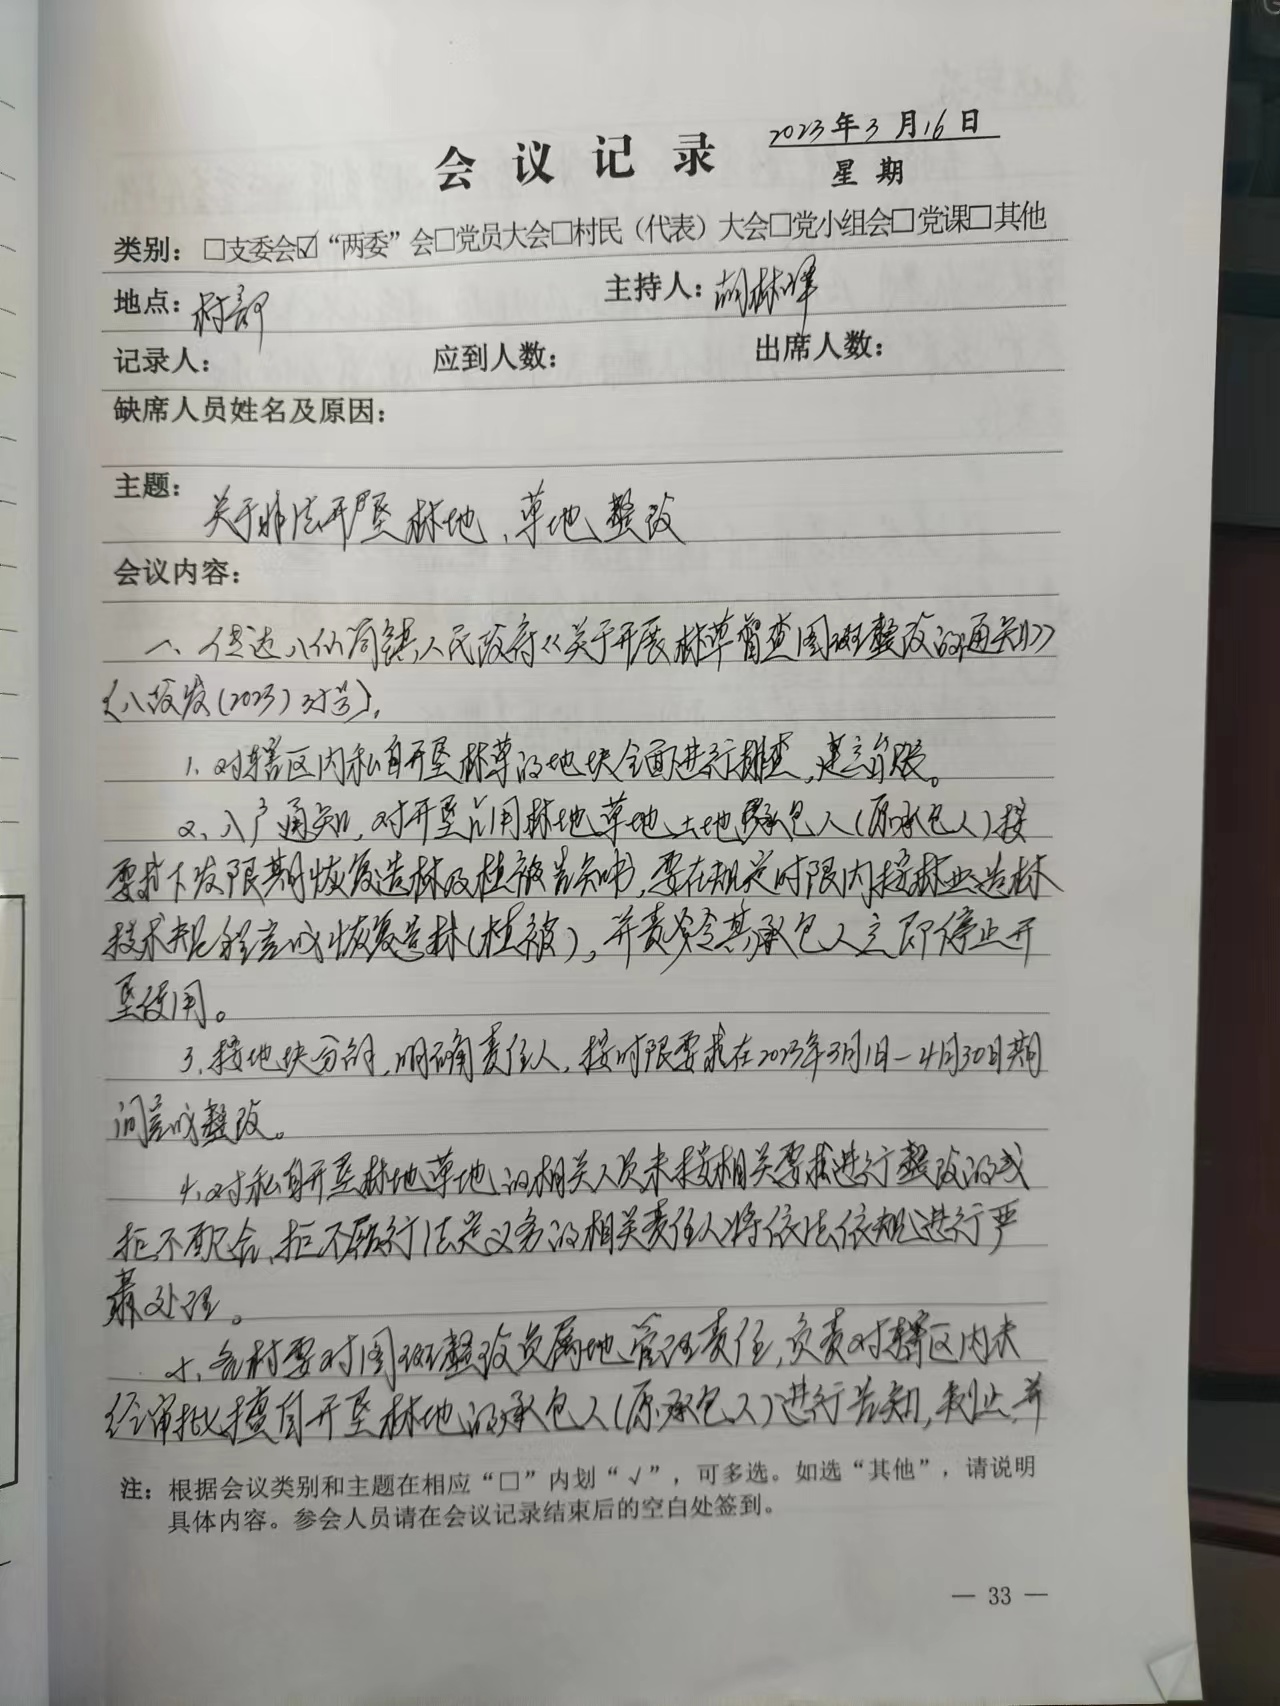 会议记录
2023年3月16日
星期
类别：□支委会☑“两委”会□党员大会□村民（代表）大会□党小组会□党课□其他
地点：村部 主持人：胡林峰
记录人： 应到人数： 出席人数：
缺席人员姓名及原因：
主题：关于非法开垦林地、草地整改
会议内容：
一、传达八仙筒镇人民政府《关于开展林草督查图斑整改的通知》
（八政发（2023）号），
1、对辖区内私自开垦林草的地块全面进行排查，建立台账。
2、入户通知，对开垦占用林地草地土地承包人（原承包人）按
要求下发限期恢复造林及植被告知书，要在规定时限内按林业造林
技术规程完成恢复造林（植被），并责令其承包人立即停止开
垦使用。
3、按地块分解，明确责任人，按时限要求在2023年3月1日—4月30日期
间完成整改。
4、对私自开垦林地草地的相关人员未按相关要求进行整改的或
拒不配合，拒不履行法定义务的相关责任人将依法依规进行严
肃处理。
5、各村要对图斑整改负属地管理责任，负责对辖区内未
经审批擅自开垦林地的承包人（原承包人）进行告知，制止，并
注：根据会议类别和主题在相应“□”内划“√”，可多选。如选“其他”，请说明
具体内容。参会人员请在会议记录结束后的空白处签到。
— 33 —